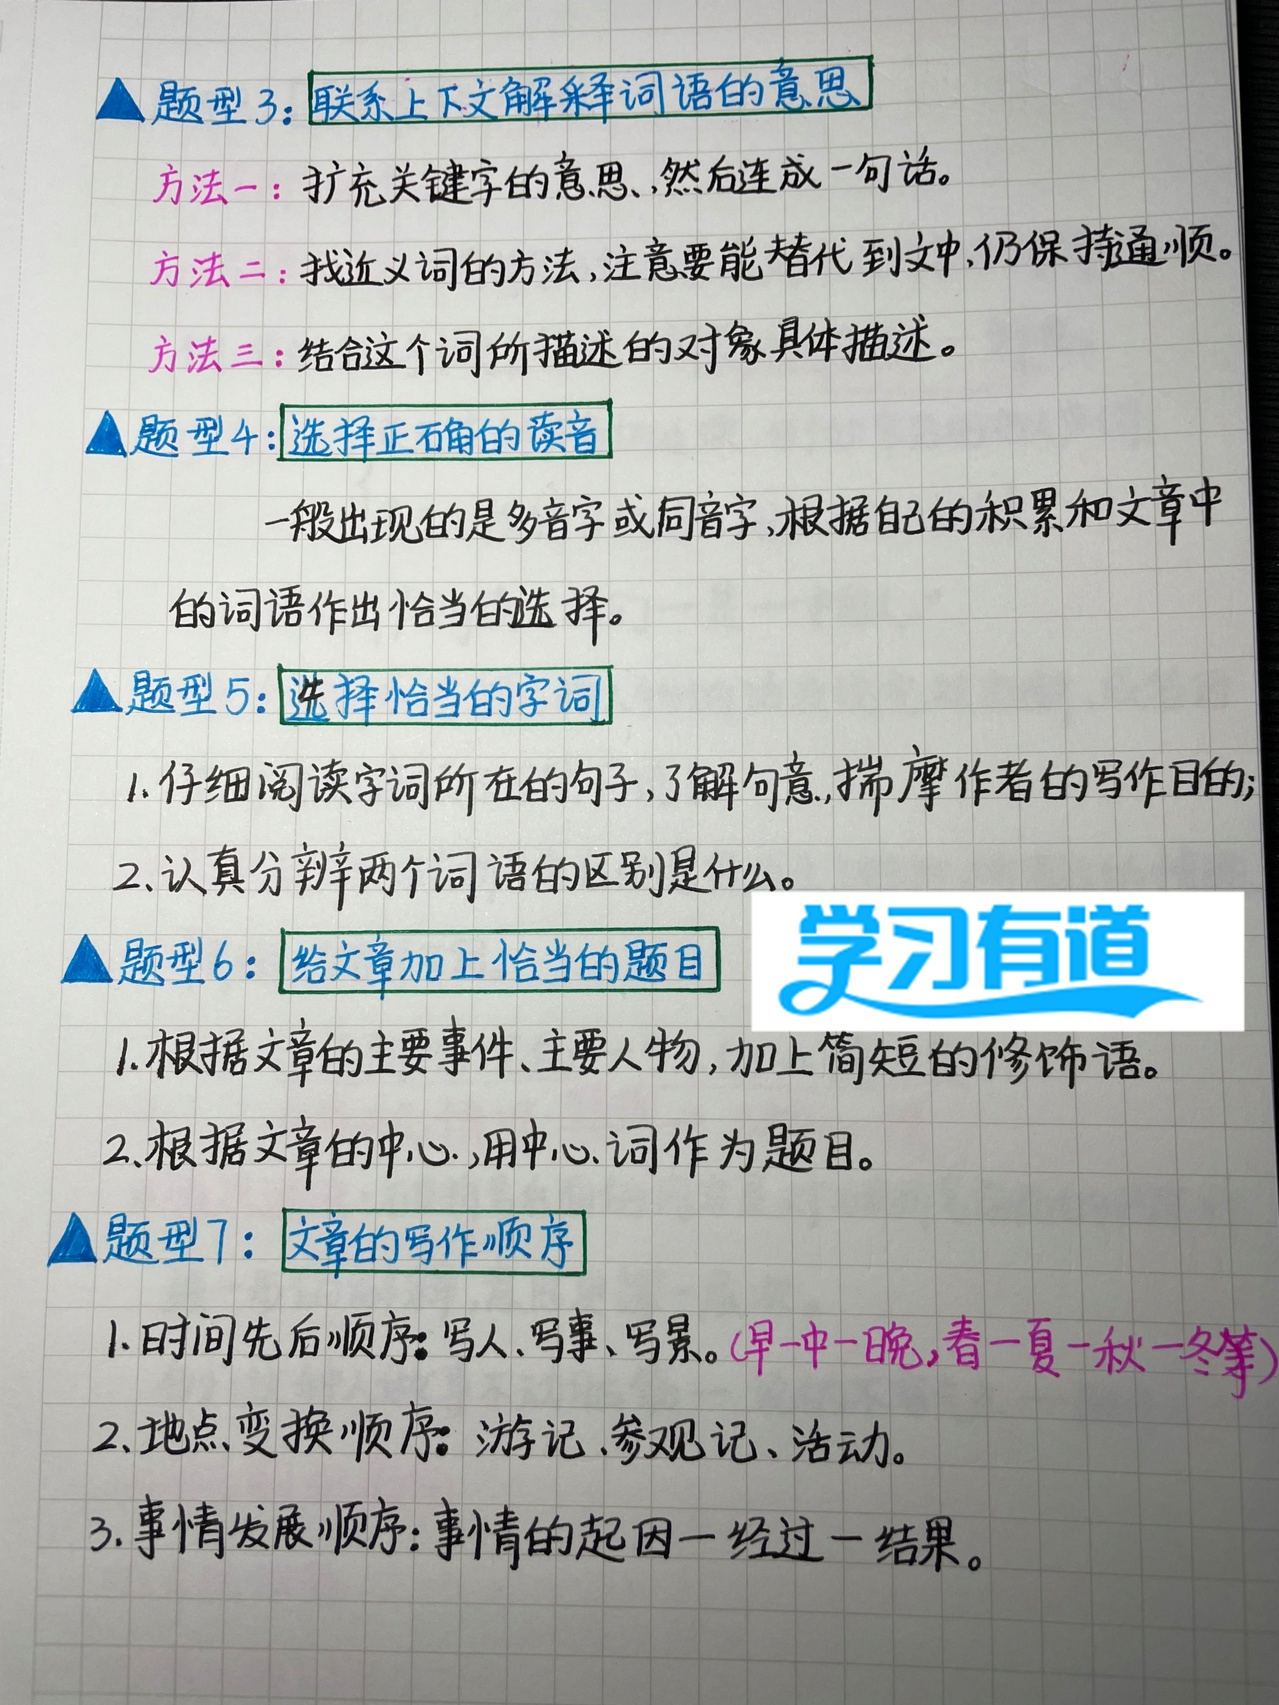 ▲题型3: 联系上下文解释词语的意思
方法一: 扩充关键字的意思,然后连成一句话。
方法二: 找近义词的方法,注意要能替代到文中,仍保持通顺。
方法三: 结合这个词所描述的对象具体描述。
▲题型4: 选择正确的读音
一般出现的是多音字或同音字,根据自己的积累和文章中
的词语作出恰当的选择。
▲题型5: 选择恰当的字词
1.仔细阅读字词所在的句子,了解句意,揣摩作者的写作目的;
2.认真分辨两个词语的区别是什么。
学习有道
▲题型6: 给文章加上恰当的题目
1.根据文章的主要事件、主要人物,加上简短的修饰语。
2.根据文章的中心,用中心词作为题目。
▲题型7: 文章的写作顺序
1.时间先后顺序: 写人、写事、写景。(早—中—晚,春—夏—秋—冬等)
2.地点变换顺序: 游记、参观记、活动。
3.事情发展顺序: 事情的起因—经过—结果。